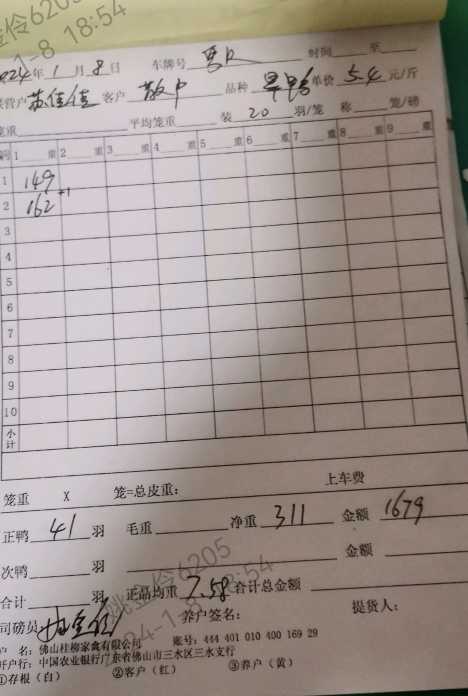 金伶6205
1-8 18:54
2024年1月8日 车牌号 时间 至
营户 苏佳佳 客户 散户 品种 旱鸭 单价 5.4 元/斤
笼重 平均笼重 装 20 羽/笼 称 笼/磅
1 重 2 重 3 重 4 重 5 重 6 重 7 重 8 重 9 重
1 149
2 162 +1
3
4
5
6
7
8
9
10
小计
笼重 X 笼=总皮重: 上车费
正鸭 41 羽 毛重 净重 311 金额 1679
次鸭 羽 金额
合计 羽 正品均重 7.58 合计总金额
司磅员 养户签名: 提货人:
姚金伶6205
24-1-8 18:54
户 名: 佛山桂柳家禽有限公司 账号: 444 401 010 400 169 29
开户行: 中国农业银行广东省佛山市三水区三水支行
①存根(白) ②客户(红) ③养户(黄)